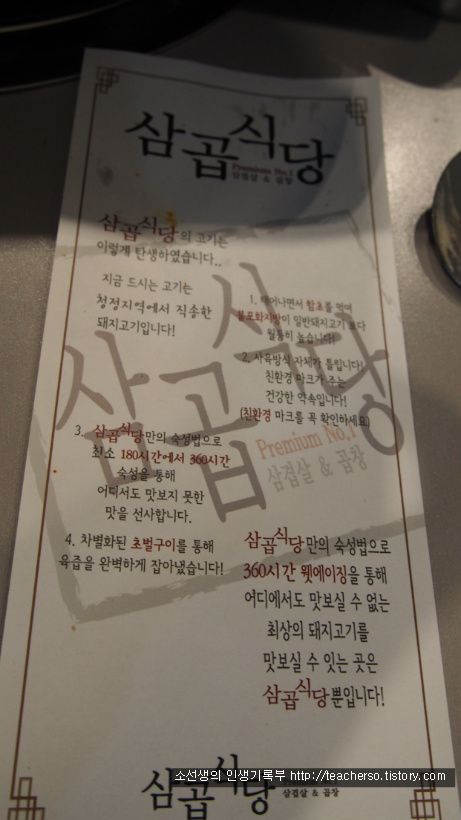 삼곱식당
Premium No.1
삼겹살 & 곱창
삼곱식당의 고기는
이렇게 탄생하였습니다..
지금 드시는 고기는
청정지역에서 직송한
돼지고기입니다!
1. 태어나면서 함초를 먹여
불포화지방이 일반돼지고기 보다
월등히 높습니다!
2. 사육방식 자체가 틀립니다!
친환경 마크가 주는
건강한 약속입니다!
(친환경 마크를 꼭 확인하세요)
삼곱식당
Premium No.1
삼겹살 & 곱창
3. 삼곱식당만의 숙성법으로
최소 180시간에서 360시간
숙성을 통해
어디서도 맛보지 못한
맛을 선사합니다.
4. 차별화된 초벌구이를 통해
육즙을 완벽하게 잡아냈습니다!
삼곱식당만의 숙성법으로
360시간 웻에이징을 통해
어디에서도 맛보실 수 없는
최상의 돼지고기를
맛보실 수 있는 곳은
삼곱식당뿐입니다!
삼곱식당
삼겹살 & 곱창
소선생의 인생기록부 http://teacherso.tistory.com